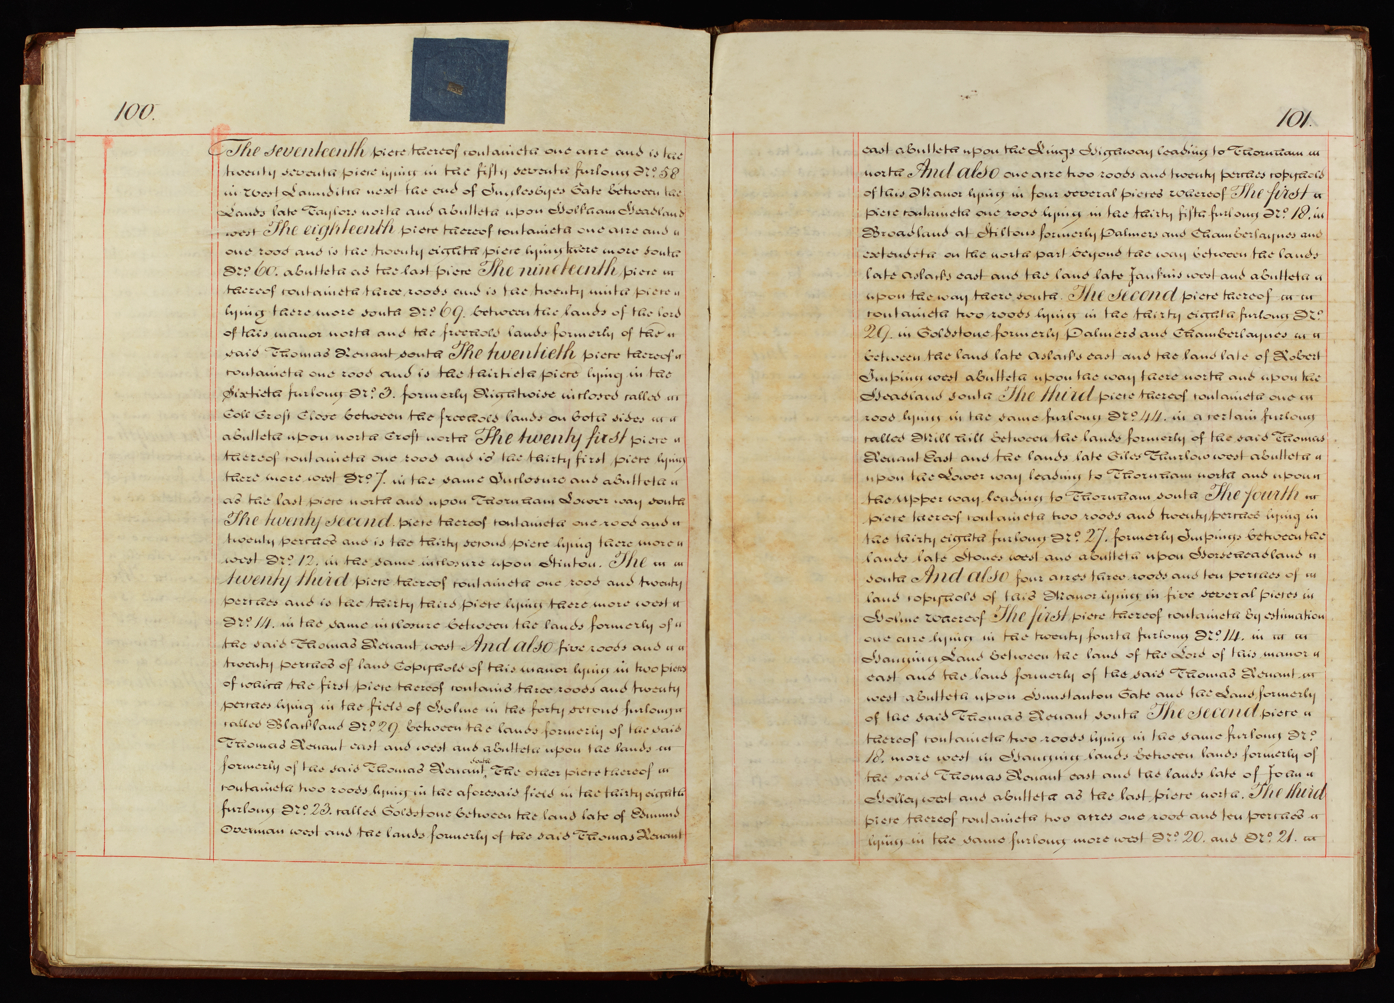 100.
The seventeenth piece thereof containeth one acre and is the
twenty seventh piece lying in the fifty seventh furlong No. 58
in West Launditch next the end of Smilesbyes Gate between the
Lands late Taylors north and abutteth upon Holkham Headland
west The eighteenth piece thereof containeth one acre and
one rood and is the twenty eighth piece lying there more south
No. 60. abutteth as the last piece The nineteenth piece
thereof containeth three roods and is the twenty ninth piece
lying there more south No. 69. between the lands of the lord
of this manor north and the freehold lands formerly of the
said Thomas Renant south The twentieth piece thereof
containeth one rood and is the thirtieth piece lying in the
Sixtieth furlong No. 3. formerly Rightwise inclosed called
Coll Croft Close between the freehold lands on both sides
abutteth upon north Croft north The twenty first piece
thereof containeth one rood and is the thirty first piece lying
there more west No. 7. in the same Inclosure and abutteth
as the last piece north and upon Thornham Lower way south
The twenty second piece thereof containeth one rood and
twenty perches and is the thirty second piece lying there more
west No. 12. in the same inclosure upon Stinton. The
twenty third piece thereof containeth one rood and twenty
perches and is the thirty third piece lying there more west
No. 14. in the same inclosure between the lands formerly of
the said Thomas Renant west And also five roods and
twenty perches of land Copyhold of this manor lying in two pieces
of which the first piece thereof contains three roods and twenty
perches lying in the field of Holme in the forty second furlong
called Blackland No. 29 between the lands formerly of the said
Thomas Renant east and west and abutteth upon the lands
formerly of the said Thomas Renant south, The other piece thereof
containeth two roods lying in the aforesaid field in the thirty eighth
furlong No. 23. called Goldstone between the land late of Edmund
Overman west and the lands formerly of the said Thomas Renant
101.
east abutteth upon the Kings Highway leading to Thornham
north And also one acre two roods and twenty perches copyhold
of this Manor lying in four several pieces whereof The first
piece containeth one rood lying in the thirty fifth furlong No. 18. in
Broadland at Stiltons formerly Palmers and Chamberlaynes and
extendeth on the north part beyond the way between the lands
late Aslacks east and the land late Jankins west and abutteth
upon the way there south. The second piece thereof
containeth two roods lying in the thirty eighth furlong No.
29. in Goldstone formerly Palmers and Chamberlaynes
between the land late Aslacks east and the land late of Robert
Imping west abutteth upon the way there north and upon the
Headland south The third piece thereof containeth one
rood lying in the same furlong No. 44. in a certain furlong
called Mill hill between the lands formerly of the said Thomas
Renant East and the lands late Giles Thurlow west abutteth
upon the Lower way leading to Thornham north and upon
the upper way leading to Thornham south The fourth
piece thereof containeth two roods and twenty perches lying in
the thirty eighth furlong No. 27. formerly Impings between the
lands late Stones west and abutteth upon Horseheadland
south And also four acres three roods and ten perches of
land copyhold of this Manor lying in five several pieces in
Holme whereof The first piece thereof containeth by estimation
one acre lying in the twenty fourth furlong No. 14. in
Hanging Land between the land of the Lord of this manor
east and the land formerly of the said Thomas Renant
west abutteth upon Hunstanton Gate and the Land formerly
of the said Thomas Renant south The second piece
thereof containeth two roods lying in the same furlong No.
18. more west in Hanging lands between lands formerly of
the said Thomas Renant east and the lands late of John
Holley west and abutteth as the last piece north. The third
piece thereof containeth two acres one rood and ten perches
lying in the same furlong more west No. 20. and No. 21.